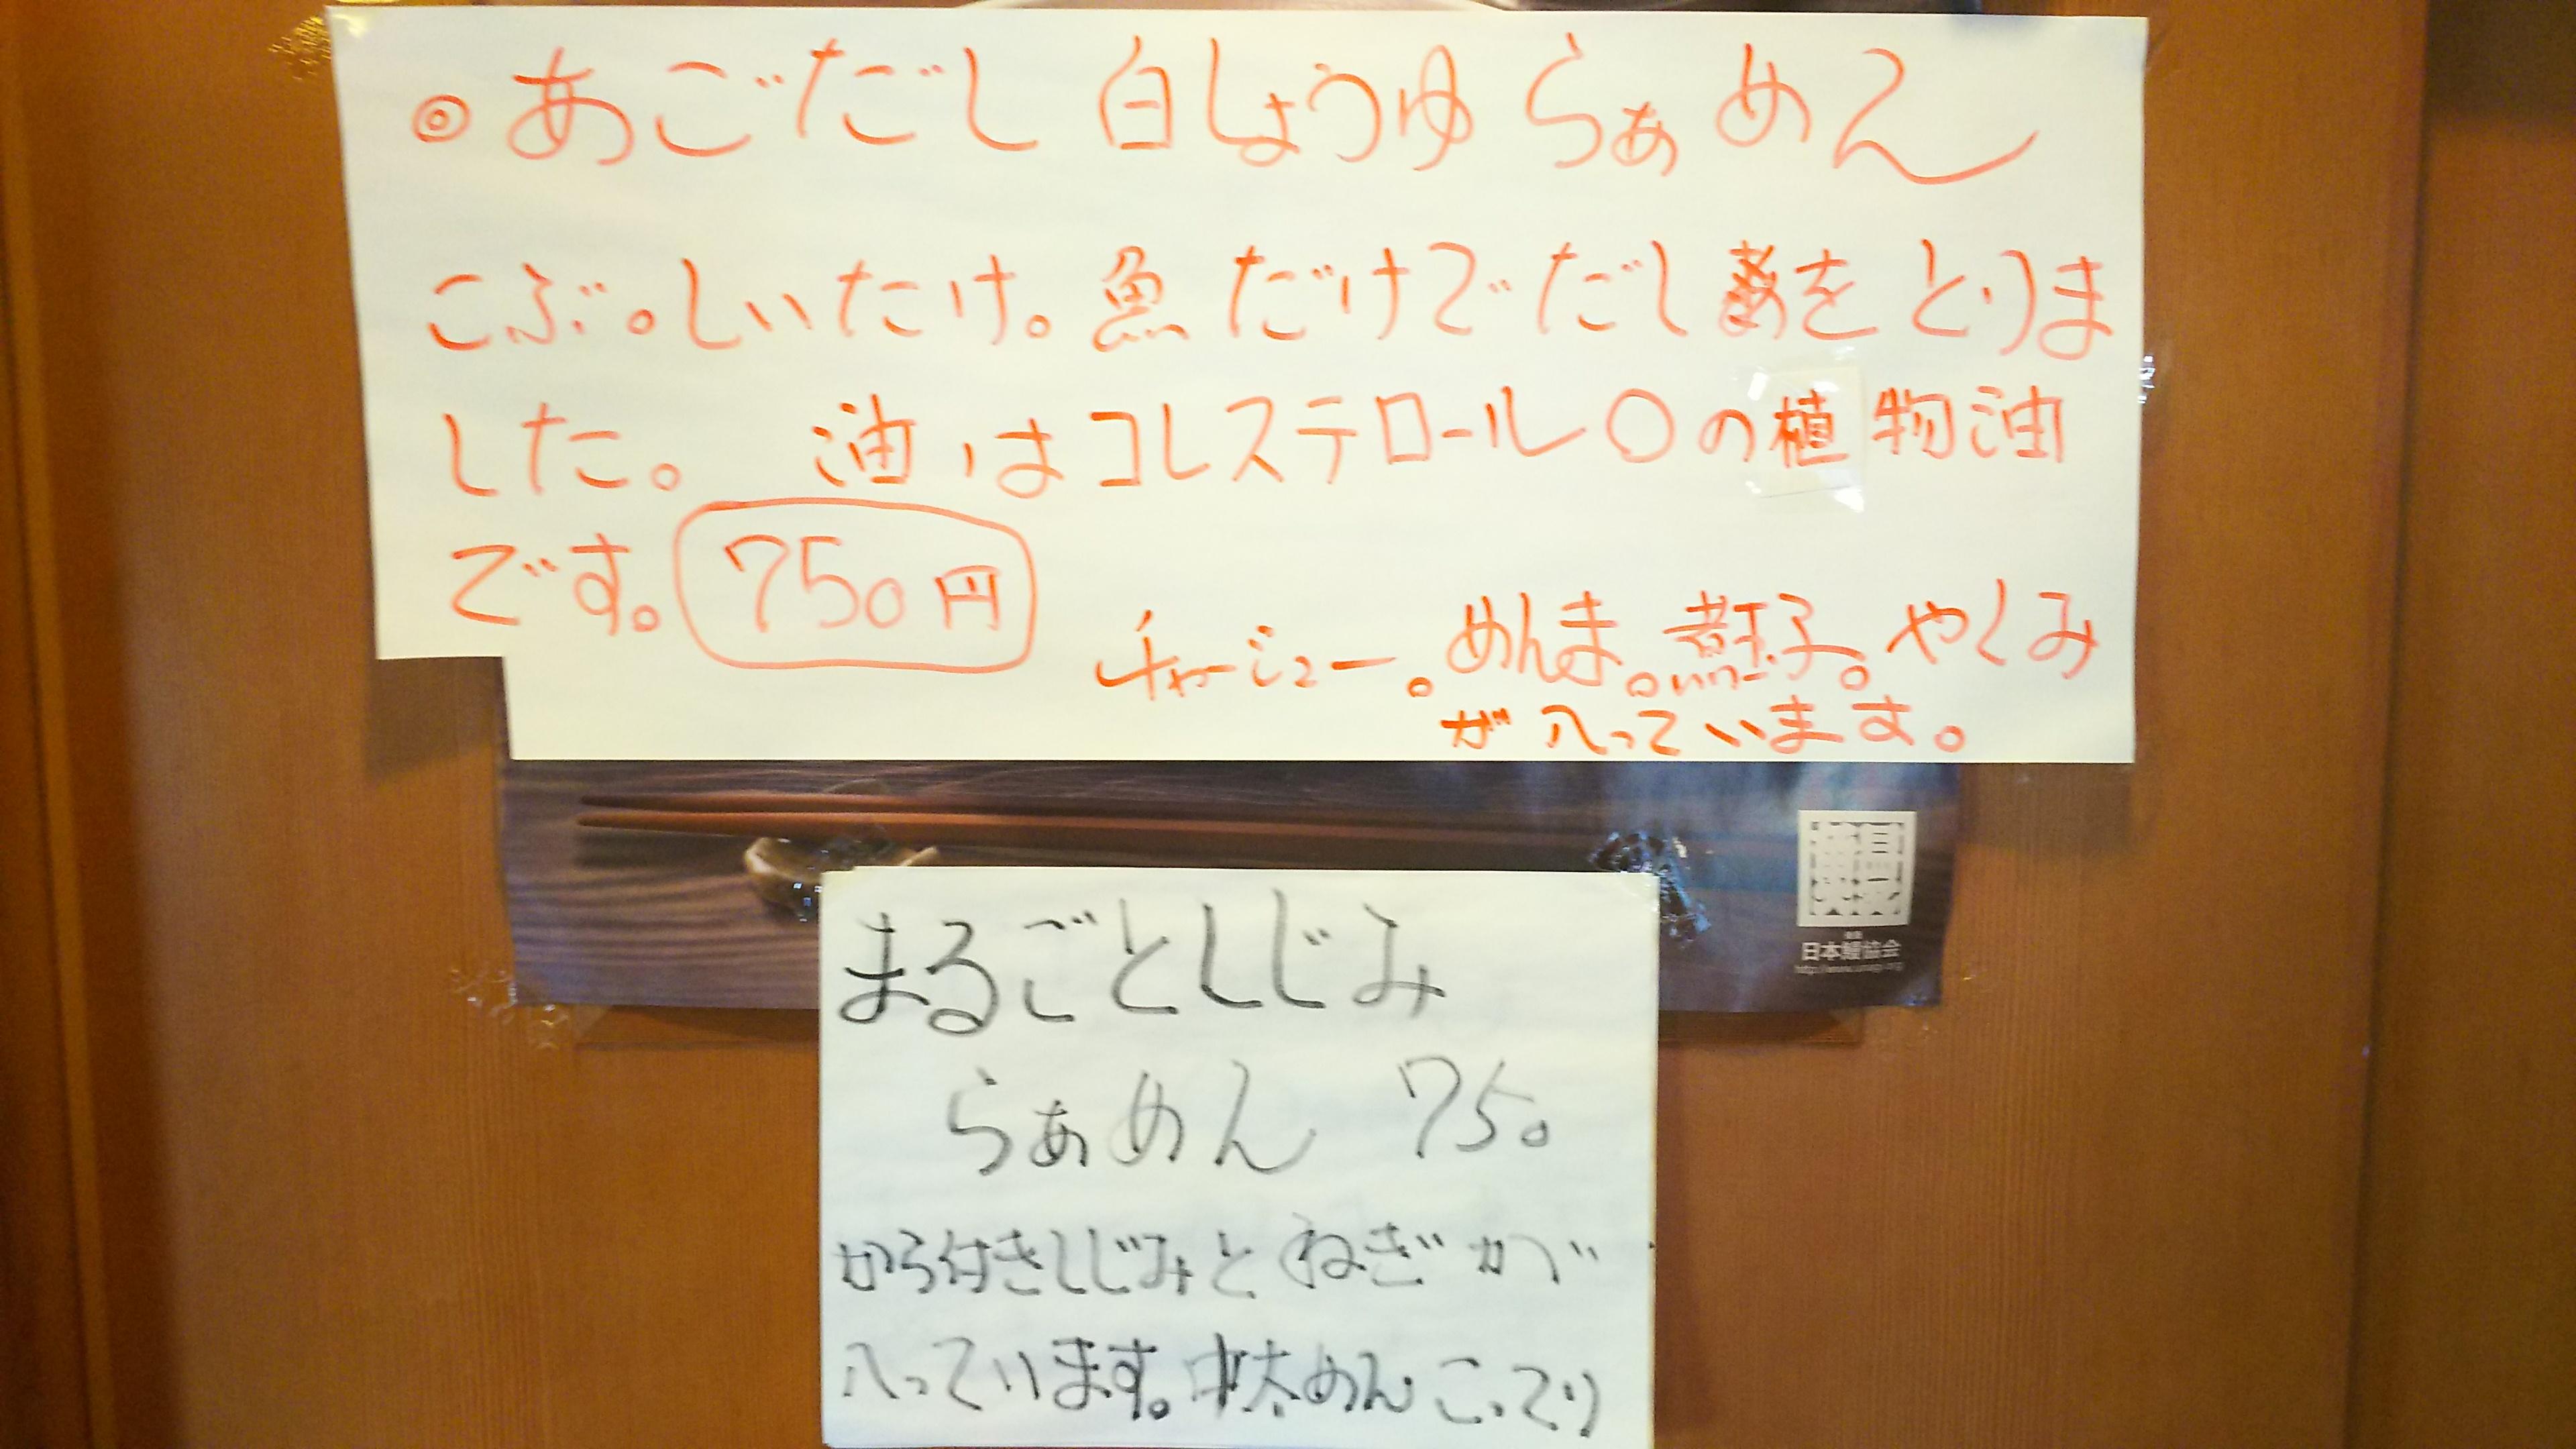 ◎あごだし 白しょうゆ らぁめん
こぶ。しいたけ。魚だけでだしをとりま
した。 油はコレステロール〇の植物油
です。 750円
チャーシュー。めんま。煮玉子。やくみ
が入っています。
日本鰻協会
まるごとしじみ
らぁめん 750
から付きしじみとねぎがが
入っています。中太めんこってり